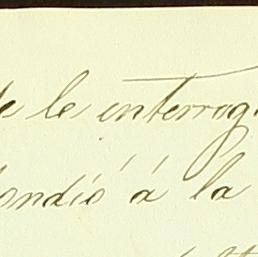 le interrog
ondió á la